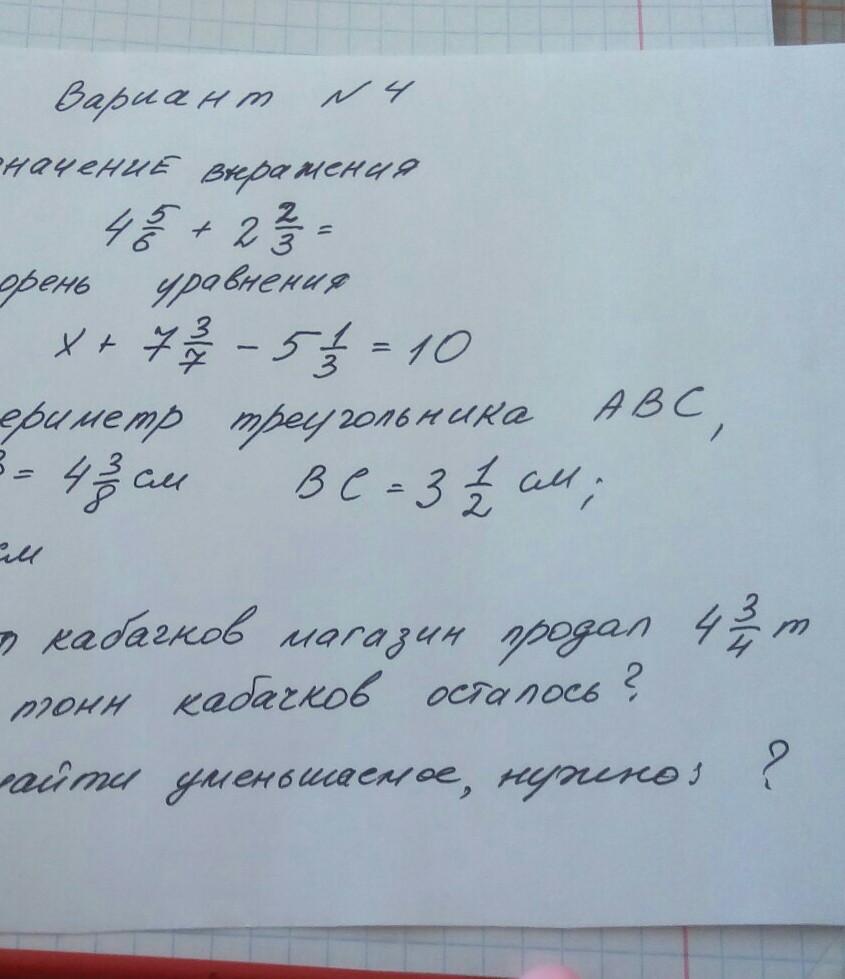 Вариант N 4
значение выражения
4 5/6 + 2 2/3 =
орень уравнения
x + 7 3/7 - 5 1/3 = 10
ериметр треугольника ABC,
B = 4 3/8 см BC = 3 1/2 см;
см
т кабачков магазин продал 4 3/4 т
тонн кабачков осталось?
найти уменьшаемое, нужно: ?